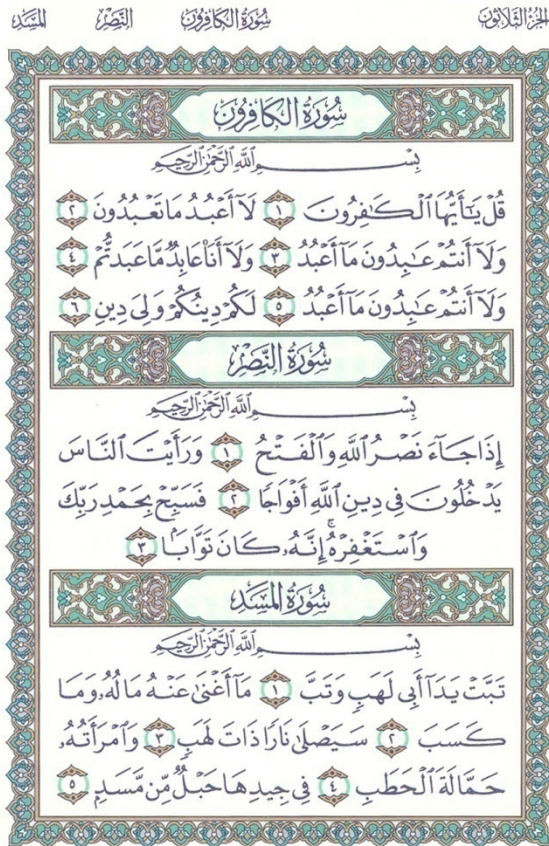 الجزء الثلاثون سُورَةُ الكَافِرُونَ النَّصْرِ المَسَدِ
سُورَةُ الكَافِرُونَ
بِسْمِ اللَّهِ الرَّحْمَٰنِ الرَّحِيمِ
قُلْ يَٰٓأَيُّهَا ٱلْكَٰفِرُونَ ١ لَآ أَعْبُدُ مَا تَعْبُدُونَ ٢
وَلَآ أَنتُمْ عَٰبِدُونَ مَآ أَعْبُدُ ٣ وَلَآ أَنَا۠ عَابِدٌ مَّا عَبَدتُّمْ ٤
وَلَآ أَنتُمْ عَٰبِدُونَ مَآ أَعْبُدُ ٥ لَكُمْ دِينُكُمْ وَلِيَ دِينِ ٦
سُورَةُ النَّصْرِ
بِسْمِ اللَّهِ الرَّحْمَٰنِ الرَّحِيمِ
إِذَا جَآءَ نَصْرُ ٱللَّهِ وَٱلْفَتْحُ ١ وَرَأَيْتَ ٱلنَّاسَ
يَدْخُلُونَ فِى دِينِ ٱللَّهِ أَفْوَاجًا ٢ فَسَبِّحْ بِحَمْدِ رَبِّكَ
وَٱسْتَغْفِرْهُ ۚ إِنَّهُۥ كَانَ تَوَّابًۢا ٣
سُورَةُ المَسَدِ
بِسْمِ اللَّهِ الرَّحْمَٰنِ الرَّحِيمِ
تَبَّتْ يَدَآ أَبِى لَهَبٍ وَتَبَّ ١ مَآ أَغْنَىٰ عَنْهُ مَالُهُۥ وَمَا
كَسَبَ ٢ سَيَصْلَىٰ نَارًا ذَاتَ لَهَبٍ ٣ وَٱمْرَأَتُهُۥ
حَمَّالَةَ ٱلْحَطَبِ ٤ فِى جِيدِهَا حَبْلٌ مِّن مَّسَدٍۭ ٥